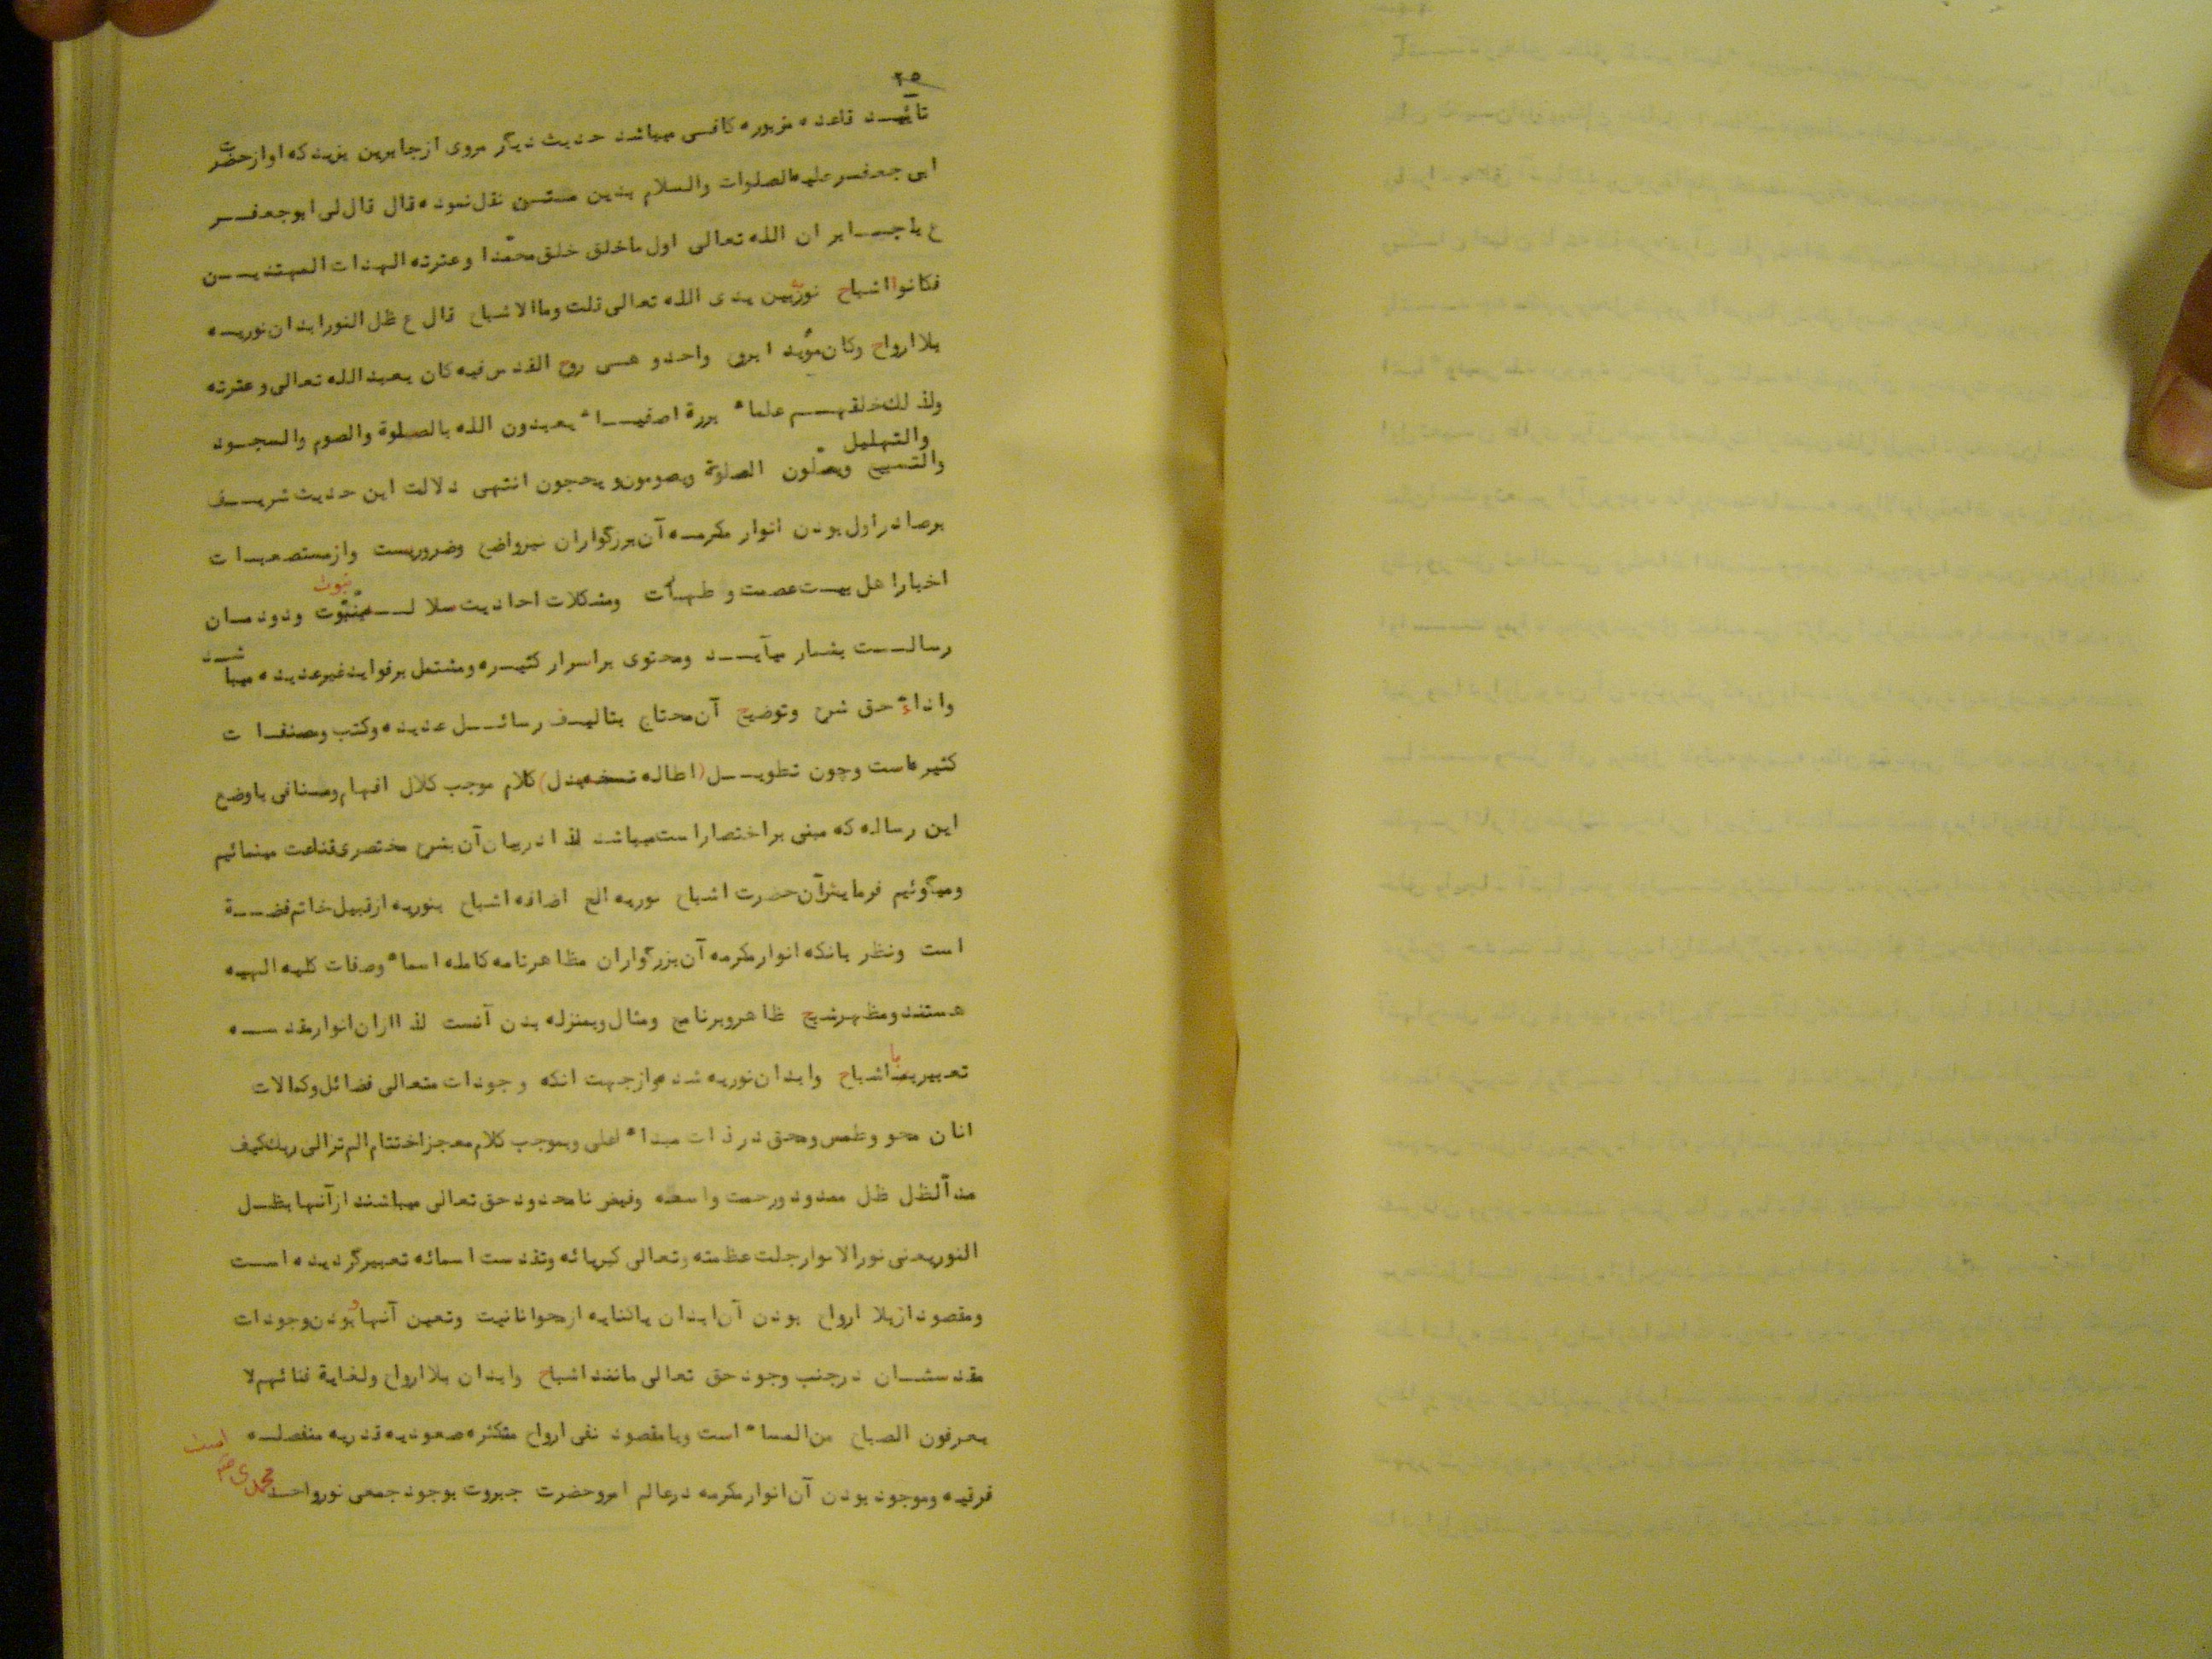 ۲۵
تائیـد قاعده مزبوره کافی میباشد حدیث دیگر مروی از جابر بن یزید که او از حضرت
ابی جعفر علیه الصلوات والسلام بدین متن نقل نموده قال قال لی ابو جعفر
ع یا جابر ان الله تعالی اول ماخلق خلق محمّدا وعترته الهدات المهتدین
فکانوا اشباح نور بین یدی الله تعالی قلت وما الاشباح قال ع ظل النور ابدان نوریه
بلا ارواح وکان مؤید ا بروح واحد و هی روح القدس فیه کان یعبد الله تعالی و عترته
ولذلك خلقهم علماء بررة اصفیاء یعبدون الله بالصلوة والصوم والسجود
والتهلیل
والتسبیح ویصلّون الصلوة ویصومون و یحجون انتهی دلالت این حدیث شریف
بر صادر اول بودن انوار مکرمه آن بزرگواران نیز واضح وضروریست واز مستصعبات
نبوت
اخبار اهل بیت عصمت و طهارت ومشکلات احادیث سلاله نبوت ودودمان
رسالت بشمار میآید ومحتوی بر اسرار کثیره ومشتمل بر فواید غیر عدیده میباشد
واداء حق شرح وتوضیح آن محتاج بتالیف رسائل عدیده وکتب ومصنفات
کثیره است وچون تطویل (اطاله نسخه بدل) کلام موجب کلال افهام ومنافی باوضع
این رساله که مبنی بر اختصار است میباشد لذا در بیان آن بشرح مختصری قناعت مینمائیم
ومیگوئیم فرمایش آن حضرت اشباح نوریه الخ اضافه اشباح بنوریه از قبیل خاتم فضة
است ونظر بانکه انوار مکرمه آن بزرگواران مظاهر تامه کامله اسماء وصفات کلیه الهیه
هستند ومظهر شبح ظاهر وبرنامج ومثال وبمنزله بدن آنست لذا ازان انوار مقدسه
تعبیر باشباح وابدان نوریه شده واز جهت انکه وجودات متعالی فضائل وکمالات
انان محو وطمس ومحق در ذات مبداء اعلی وبموجب کلام معجز اختتام الم تر الی ربك کیف
مد الظل ظل ممدود ورحمت واسعه وفیض نامحدود حق تعالی میباشند از آنها بظل
النور یعنی نور الانوار جلت عظمته وتعالی کبریائه وتقدست اسمائه تعبیر گردیده است
ومقصود از بلا ارواح بودن آن ابدان یا کنایه از محو انانیت وتعین آنها وبودن وجودات
مقدسشان در جنب وجود حق تعالی مانند اشباح وابدان بلا ارواح ولغایة فنائهم لا
یعرفون الصباح من المساء است ویا مقصود نفی ارواح متکثره صعودیه قدریه منفصله
فرقیه وموجود بودن آن انوار مکرمه در عالم امر وحضرت جبروت بوجود جمعی نور واحد
محمدی ص است